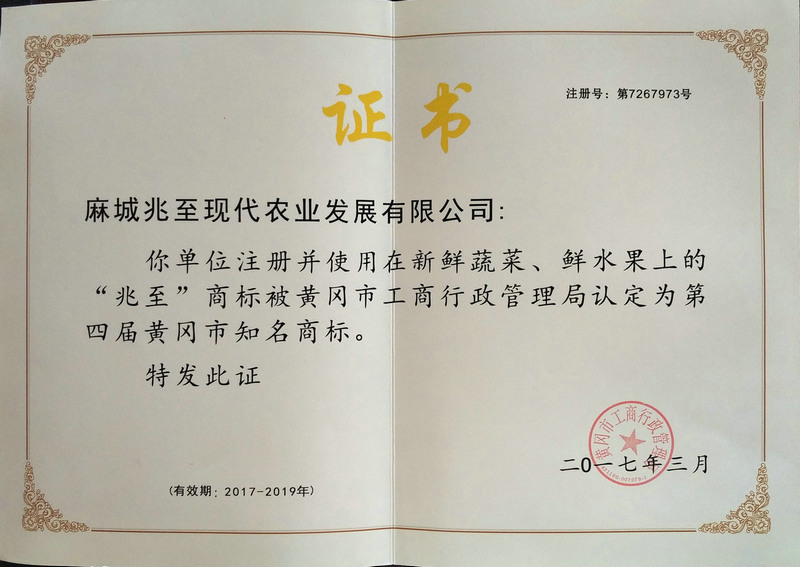 证书
注册号：第7267973号
麻城兆至现代农业发展有限公司：
你单位注册并使用在新鲜蔬菜、鲜水果上的
“兆至”商标被黄冈市工商行政管理局认定为第
四届黄冈市知名商标。
特发此证
黄冈市工商行政管理局
二0一七年三月
(有效期：2017-2019年)